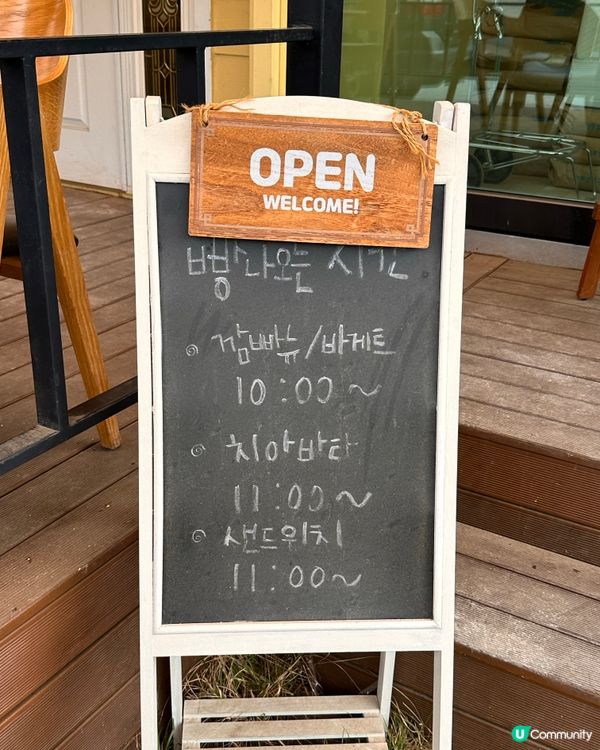 OPEN
WELCOME!
빵나오는 시간
깜빠뉴/바게트
10:00~
치아바타
11:00~
샌드위치
11:00~
U Community